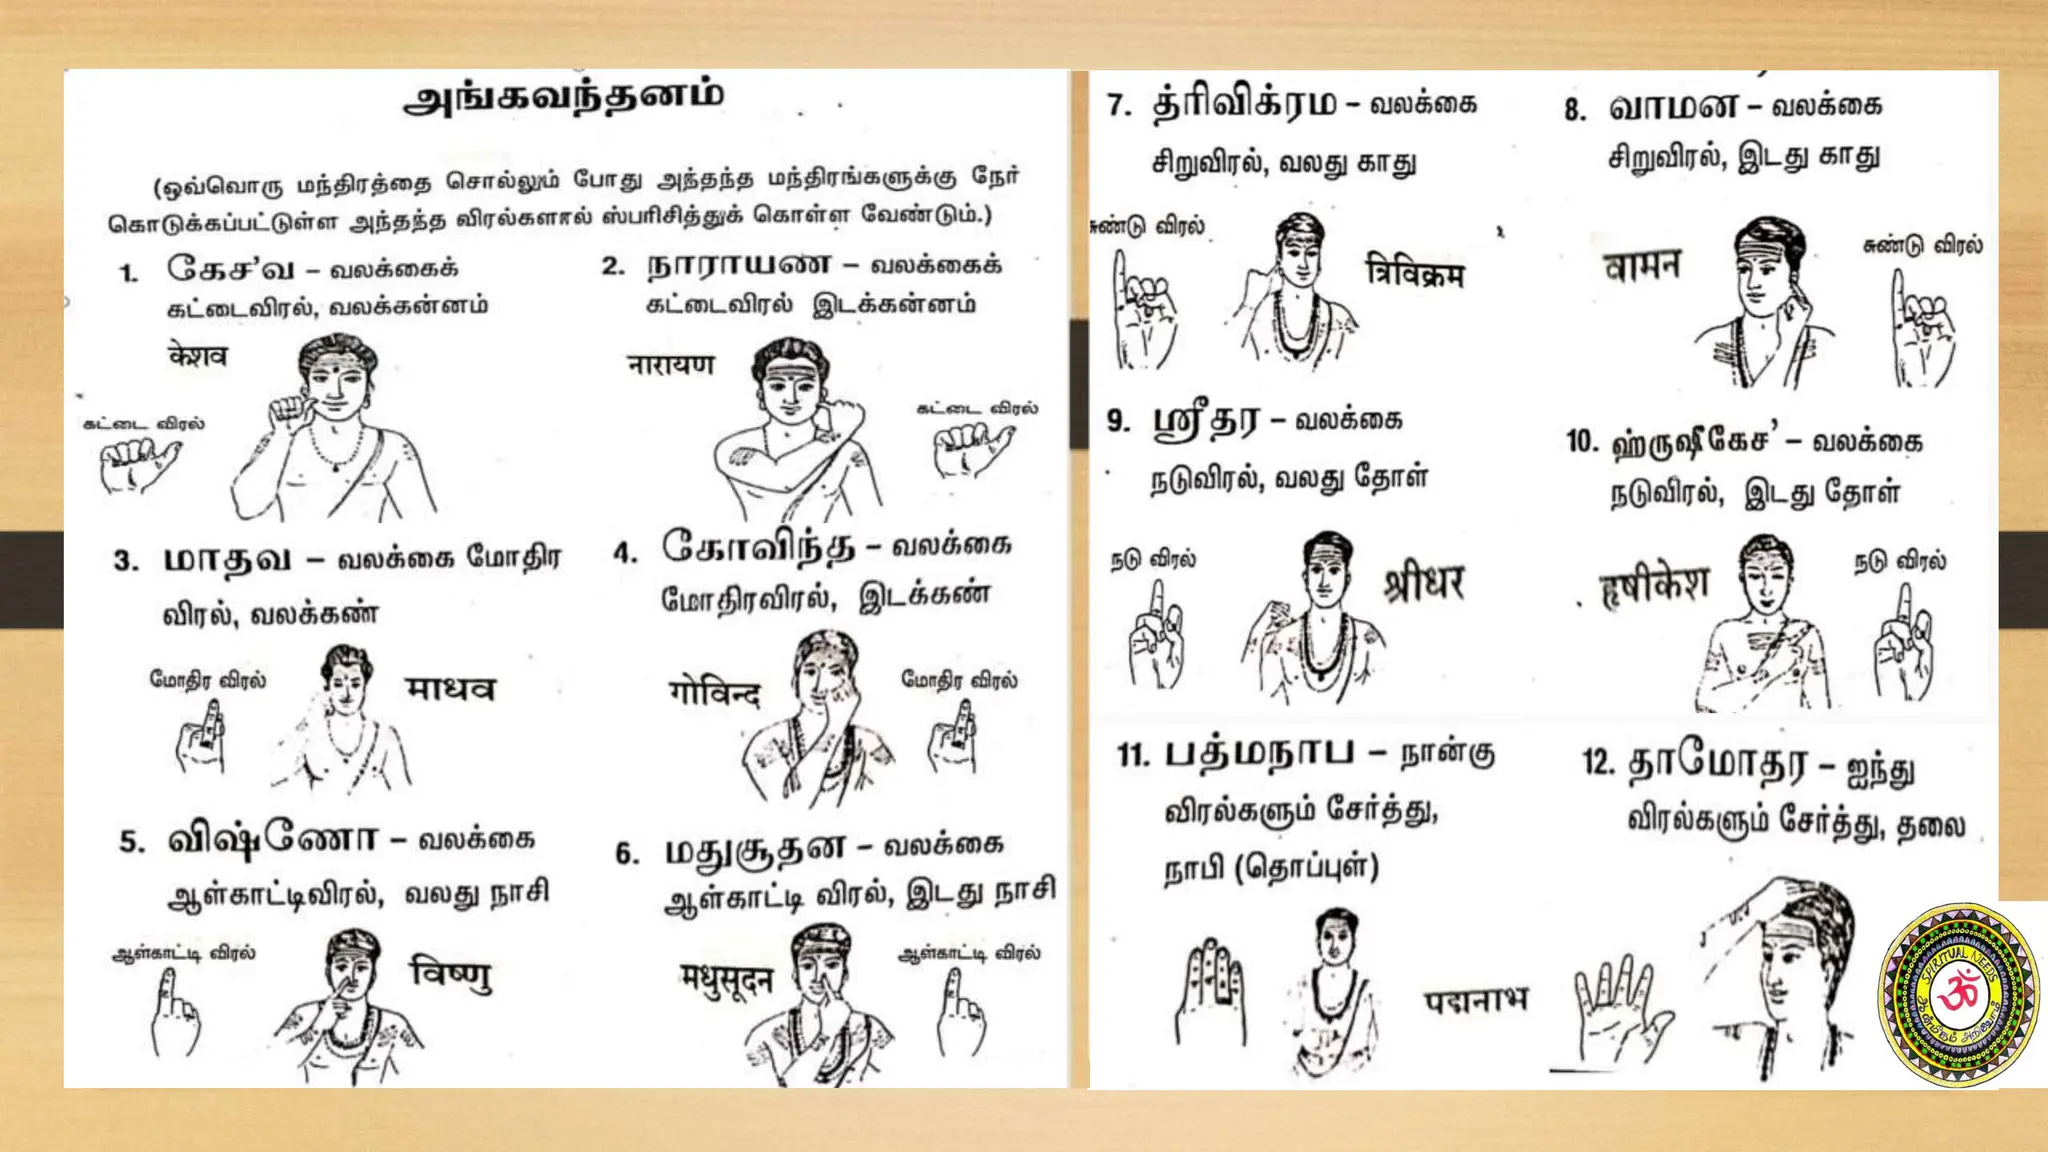 அங்கவந்தனம்
(ஒவ்வொரு மந்திரத்தை சொல்லும் போது அந்தந்த மந்திரங்களுக்கு நேர்
கொடுக்கப்பட்டுள்ள அந்தந்த விரல்களால் ஸ்பரிசித்துக் கொள்ள வேண்டும்.)
1. கேச'வ – வலக்கைக்
கட்டைவிரல், வலக்கன்னம்
केशव
கட்டை விரல்
2. நாராயண – வலக்கைக்
கட்டைவிரல் இடக்கன்னம்
नारायण
கட்டை விரல்
3. மாதவ – வலக்கை மோதிர
விரல், வலக்கண்
மோதிர விரல்
माधव
4. கோவிந்த – வலக்கை
மோதிரவிரல், இடக்கண்
गोविन्द
மோதிர விரல்
5. விஷ்ணோ – வலக்கை
ஆள்காட்டிவிரல், வலது நாசி
ஆள்காட்டி விரல்
विष्णु
6. மதுசூதன – வலக்கை
ஆள்காட்டி விரல், இடது நாசி
मधुसूदन
ஆள்காட்டி விரல்
7. த்ரிவிக்ரம – வலக்கை
சிறுவிரல், வலது காது
சுண்டு விரல்
त्रिविक्रम
8. வாமன – வலக்கை
சிறுவிரல், இடது காது
वामन
சுண்டு விரல்
9. ஸ்ரீதர – வலக்கை
நடுவிரல், வலது தோள்
நடு விரல்
श्रीधर
10. ஹ்ருஷீகேச' – வலக்கை
நடுவிரல், இடது தோள்
हृषीकेश
நடு விரல்
11. பத்மநாப – நான்கு
விரல்களும் சேர்த்து,
நாபி (தொப்புள்)
पद्मनाभ
12. தாமோதர – ஐந்து
விரல்களும் சேர்த்து, தலை
SPIRITUAL NEEDS
ॐ
ஆன்மீகம் அறிவோம்